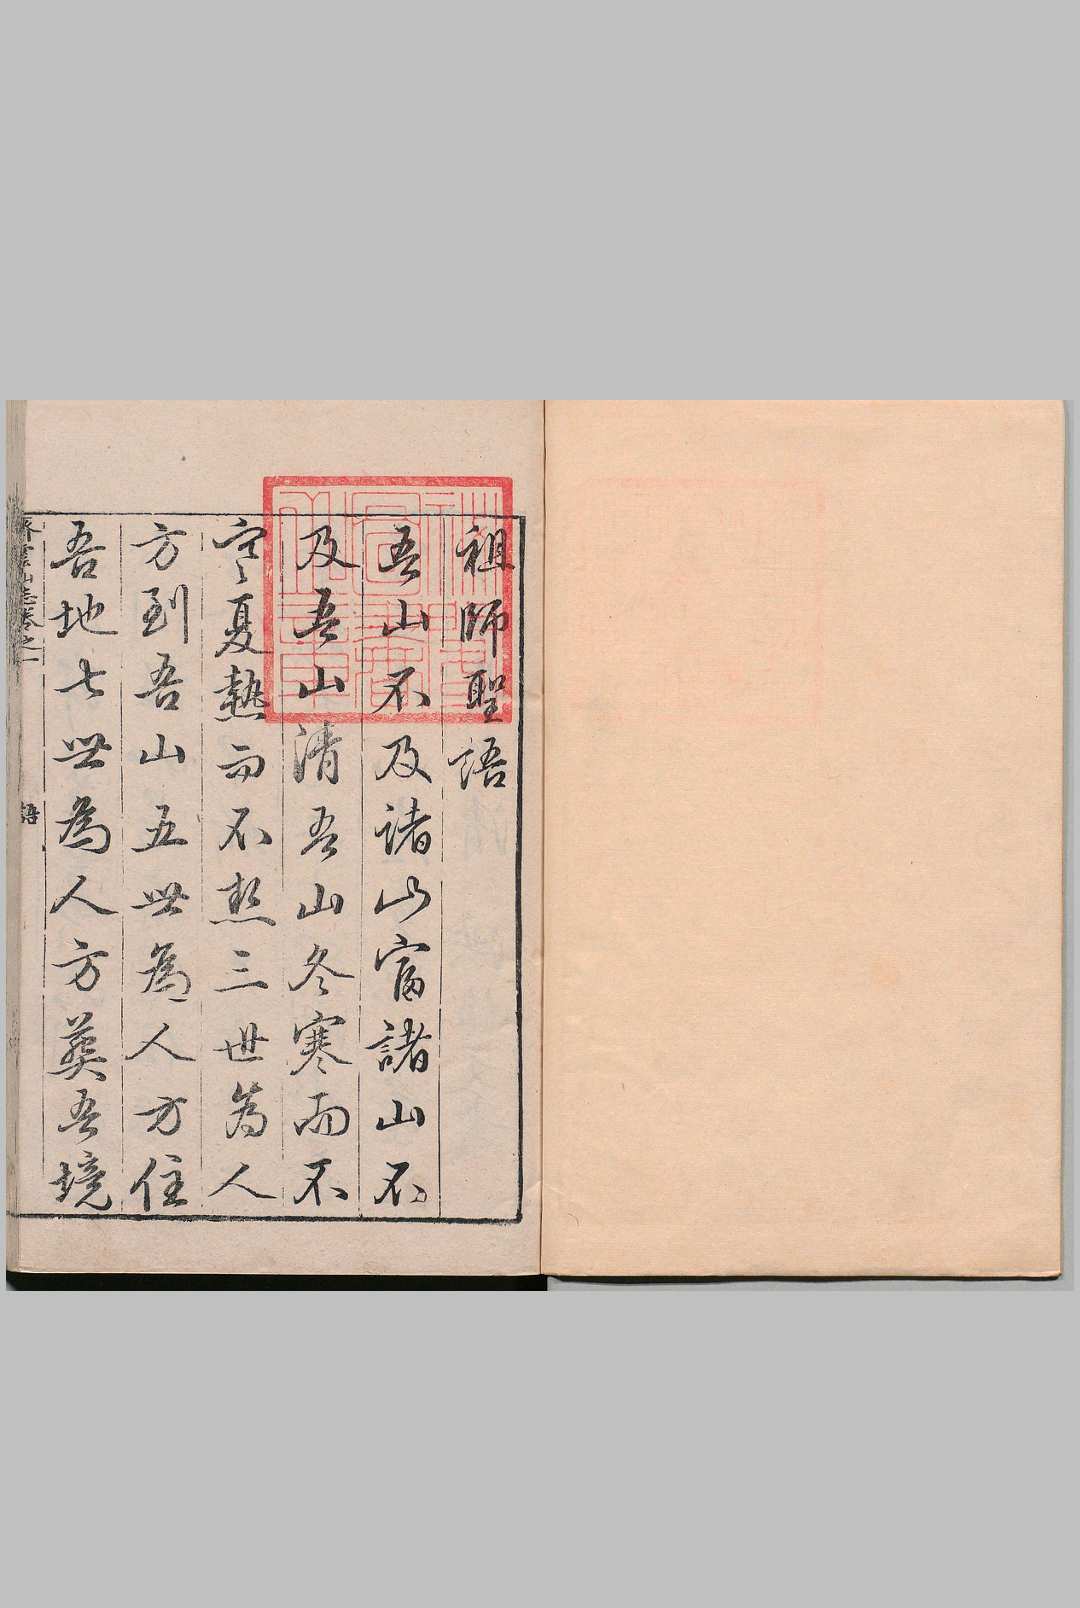 祖師聖語
吾山不及諸山富諸山不
及吾山清吾山冬寒而不
寒夏熱而不熱三世為人
方到吾山五世為人方住
吾地七世為人方葬吾境
齊雲山志卷之一
語